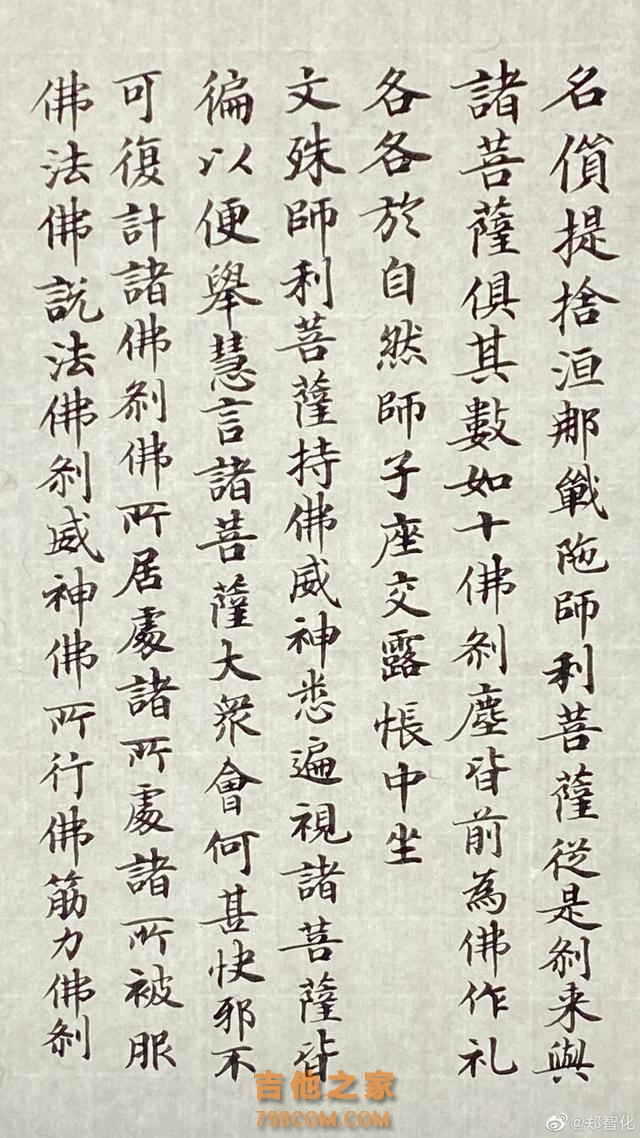 名償提捨洹那戰陁師利菩薩從是刹来與
諸菩薩俱其數如十佛刹塵皆前為佛作礼
各各於自然師子座交露帳中坐
文殊師利菩薩持佛威神悉遍視諸菩薩皆
徧以便舉慧言諸菩薩大衆會何甚快邪不
可復計諸佛刹佛所居處諸所處諸所被服
佛法佛說法佛刹威神佛所行佛筋力佛刹
吉他之家
798COM.COM
@郑智化